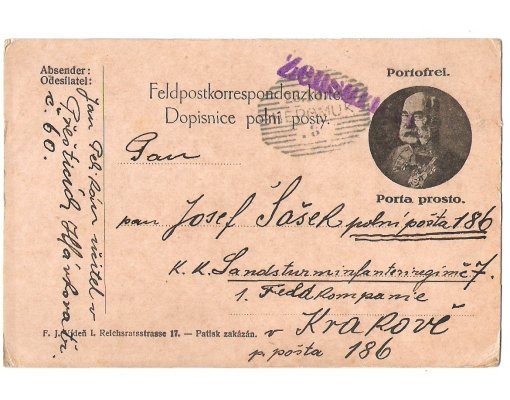 Absender:
Odesílatel:
Jan Pelikán učitel v
č. 60.
Feldpostkorrespondenzkarte
Dopisnice polní pošty.
Zensur
Portofrei.
Porta prosto.
Pan
pan Josef Šašek polní pošta 186
K. K. Landsturminfanterieregimč 7.
1. Feldkompanie
v Krakově
p. pošta 186
F. J. Vídeň I. Reichsratsstrasse 17. — Patisk zakázán.